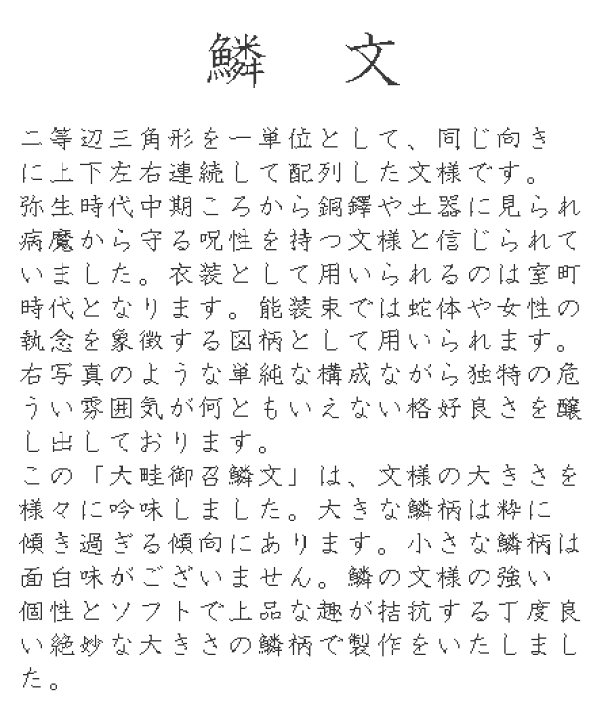 鱗 文
二等辺三角形を一単位として、同じ向き
に上下左右連続して配列した文様です。
弥生時代中期ころから銅鐸や土器に見られ
病魔から守る呪性を持つ文様と信じられて
いました。衣装として用いられるのは室町
時代となります。能装束では蛇体や女性の
執念を象徴する図柄として用いられます。
右写真のような単純な構成ながら独特の危
うい雰囲気が何ともいえない格好良さを醸
し出しております。
この「大畦御召鱗文」は、文様の大きさを
様々に吟味しました。大きな鱗柄は粋に
傾き過ぎる傾向にあります。小さな鱗柄は
面白味がございません。鱗の文様の強い
個性とソフトで上品な趣が拮抗する丁度良
い絶妙な大きさの鱗柄で製作をいたしまし
た。